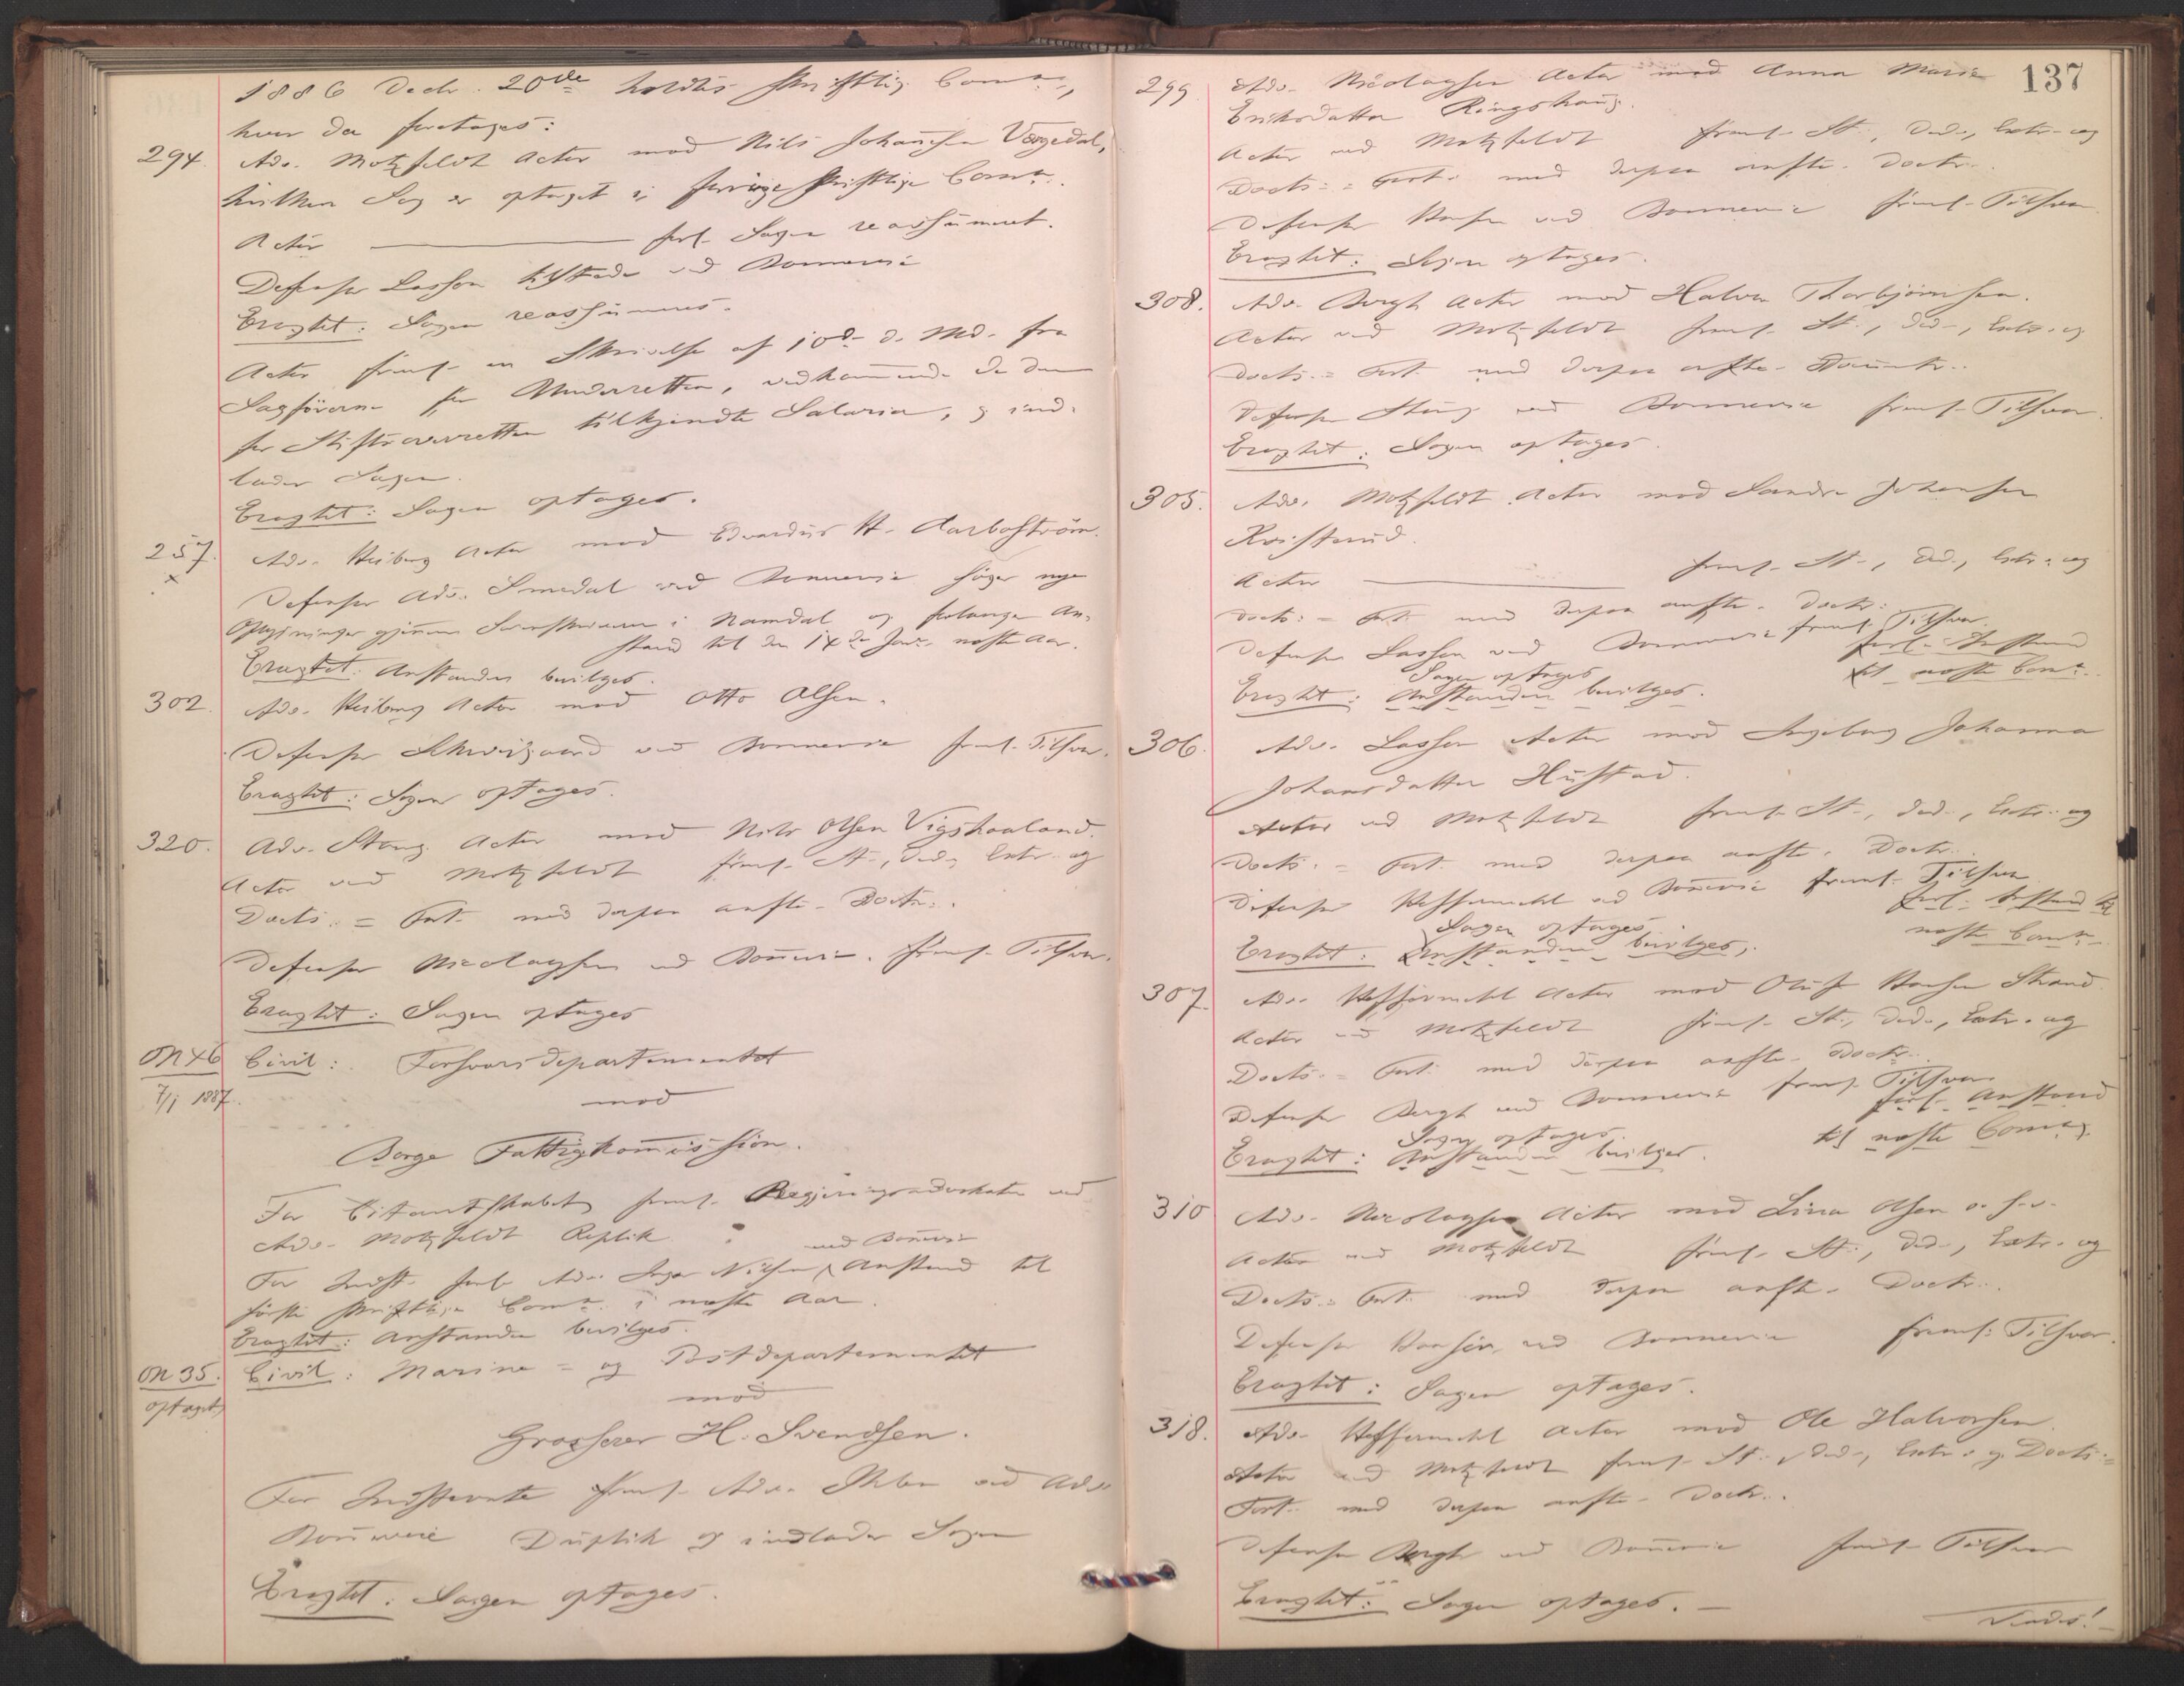 1886 Decbr. 20de holdtes skriftlig Comn.,
hvor da foretoges:
294. Adv. Motzfeldt Actor mod Nils Johansen Vaagedal,
hvilken Sag er optaget i forrige skriftlige Comn.
Actor ——— forl. Sagen reassumeret.
Defensor Lasson tilstede ved Bonnevie
Eragtet: Sagen reassumeres.
Acter freml. en Skrivelse af 10de d. Md. fra
Sagførerne for Underretten, vedkommende de dem
for Stiftsoverretten tilkjendte Salarier, og ind-
lader Sagen.
Eragtet: Sagen optages.
257. Adv. Heiberg Actor mod Edvardus H. Aarbostrøm.
x
Defensor Adv. Smedal ved Bonnevie søger nye
Oplysninger gjennem Sorenskriveren i Namdal og forlanger An-
stand til den 14de Janr. næste Aar.
Eragtet: Anstanden bevilges.
302. Adv. Heiberg Actor mod Otto Olsen.
Defensor Schweigaard ved Bonnevie freml. Tilsvar.
Eragtet: Sagen optages.
320. Adv. Stang Actor mod Nils Olsen Vigshaaland.
Actor ved Motzfeldt freml. St., Ded., Extr. og
Docts. = Fort. med derpaa anfte. Doctr.
Defensor Nicolaysen ved Bonnevie freml. Tilsvar.
Eragtet: Sagen optages
ON 46 Civil: Forsvarsdepartementet
7/1 1887.
mod
Borge Fattigkommission.
For Citantskabet freml. Regjeringsadvokaten ved
Adv. Motzfeldt Replik.
ved Bonnevie
For Indst. forl. Adv. Inger Nilsen Anstand til
første skriftlige Comn. i næste Aar.
Eragtet: Anstanden bevilges.
ON 35. Civil: Marine = og Postdepartementet
optaget
mod
Grosserer H. Svendsen.
For Indstevnte freml. Adv. ved Adv.
Bonnevie Duplik og indlader Sagen
Eragtet: Sagen optages.
137
299 Adv. Nicolaysen Actor mod Anna Marie
Eriksdatter Ringshaug.
Actor ved Motzfeldt freml. St., Ded., Extr. og
Docts. = Fort. med derpaa anfte. Doctr.
Defensor Hansen ved Bonnevie freml. Tilsvar.
Eragtet: Sagen optages.
308. Adv. Bergh Actor mod Halvor Thorbjørnsen.
Actor ved Motzfeldt freml. St., Ded., Extr. og
Docts. = Fort. med derpaa anfte. Doctr.
Defensor Stang ved Bonnevie freml. Tilsvar.
Eragtet: Sagen optages.
305. Adv. Motzfeldt Actor mod Sander Johansen
Kvisterud.
Actor ——— freml. St., Ded., Extr. og
Docts. = Fort. med derpaa anfte. Doctr.
Defensor Lasson ved Bonnevie freml. Tilsvar.
forl. Anstand
Sagen optages
til næste Comn.
Eragtet: Anstanden bevilges.
306. Adv. Lasson Actor mod Ingeborg Johanna
Johansdatter Hustad.
Actor ved Motzfeldt freml. St., Ded., Extr. og
Docts. = Fort. med derpaa anfte. Doctr.
Defensor Heffermehl ved Bonnevie freml. Tilsvar
forl. Anstand til
Sagen optages
næste Comn.
Eragtet: Anstanden bevilges.
307. Adv. Heffermehl Actor mod Oluf Hansen Strand
Actor ved Motzfeldt freml. St., Ded., Extr. og
Docts. = Fort. med derpaa anfte. Doctr.
Defensor Bergh ved Bonnevie freml. Tilsvar
forl. Anstand
Sagen optages.
til næste Comn.
Eragtet: Anstanden bevilges.
310 Adv. Nicolaysen Actor mod Lina Olsen o. s. v.
Actor ved Motzfeldt freml. St., Ded., Extr. og
Docts. = Fort. med derpaa anfte. Doctr.
Defensor Hansen ved Bonnevie freml. Tilsvar.
Eragtet: Sagen optages.
318. Adv. Heffermehl Actor mod Ole Halvorsen.
Actor ved Motzfeldt freml. St., Ded., Extr. og Docts. =
Fort. med derpaa anfte. Doctr.
Defensor Bergh ved Bonnevie freml. Tilsvar
Eragtet: Sagen optages. —
Vendes!